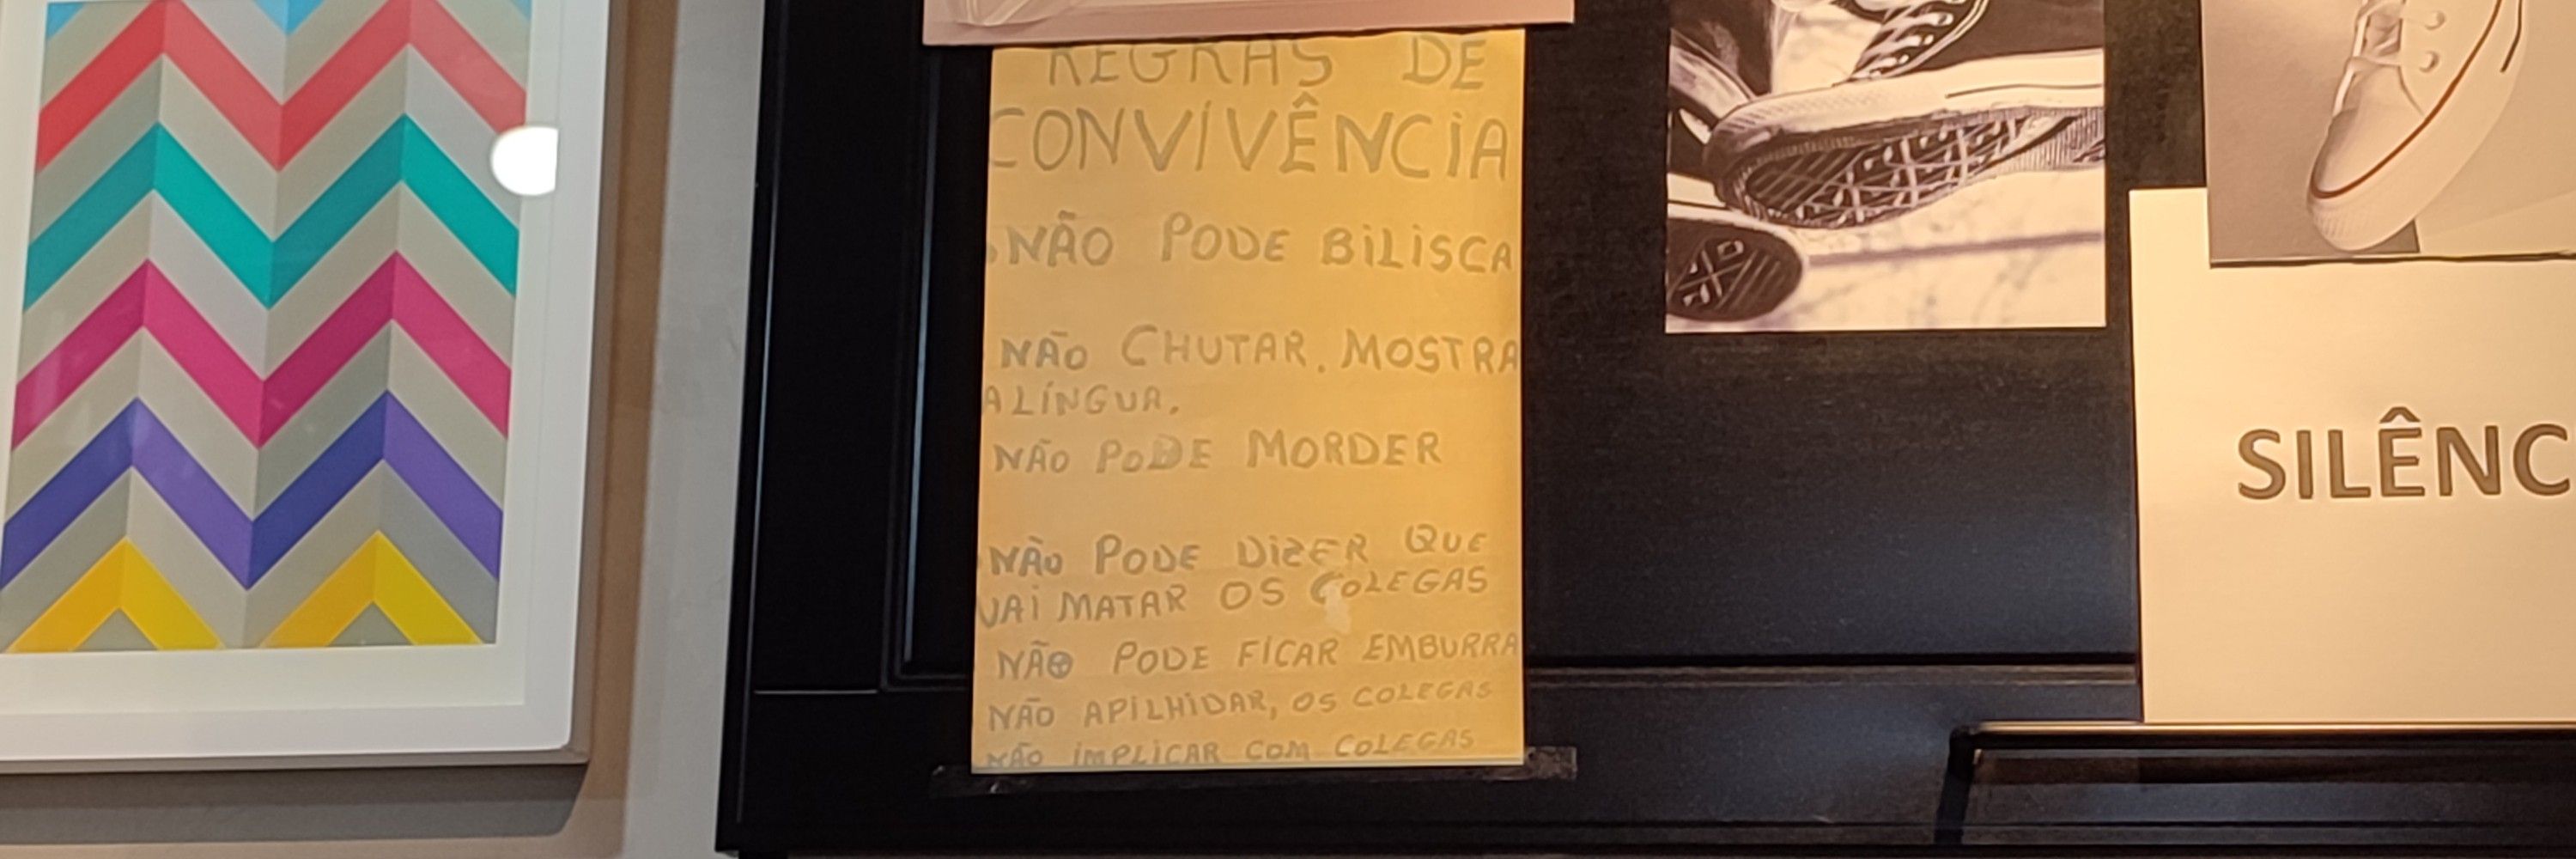 REGRAS DE
CONVIVÊNCIA
NÃO PODE BILISCA
NÃO CHUTAR. MOSTRA
A LÍNGUA.
NÃO PODE MORDER
NÃO PODE DIZER QUE
VAI MATAR OS COLEGAS
NÃO PODE FICAR EMBURRA
NÃO APILHIDAR, OS COLEGAS
NÃO IMPLICAR COM COLEGAS
SILÊNC